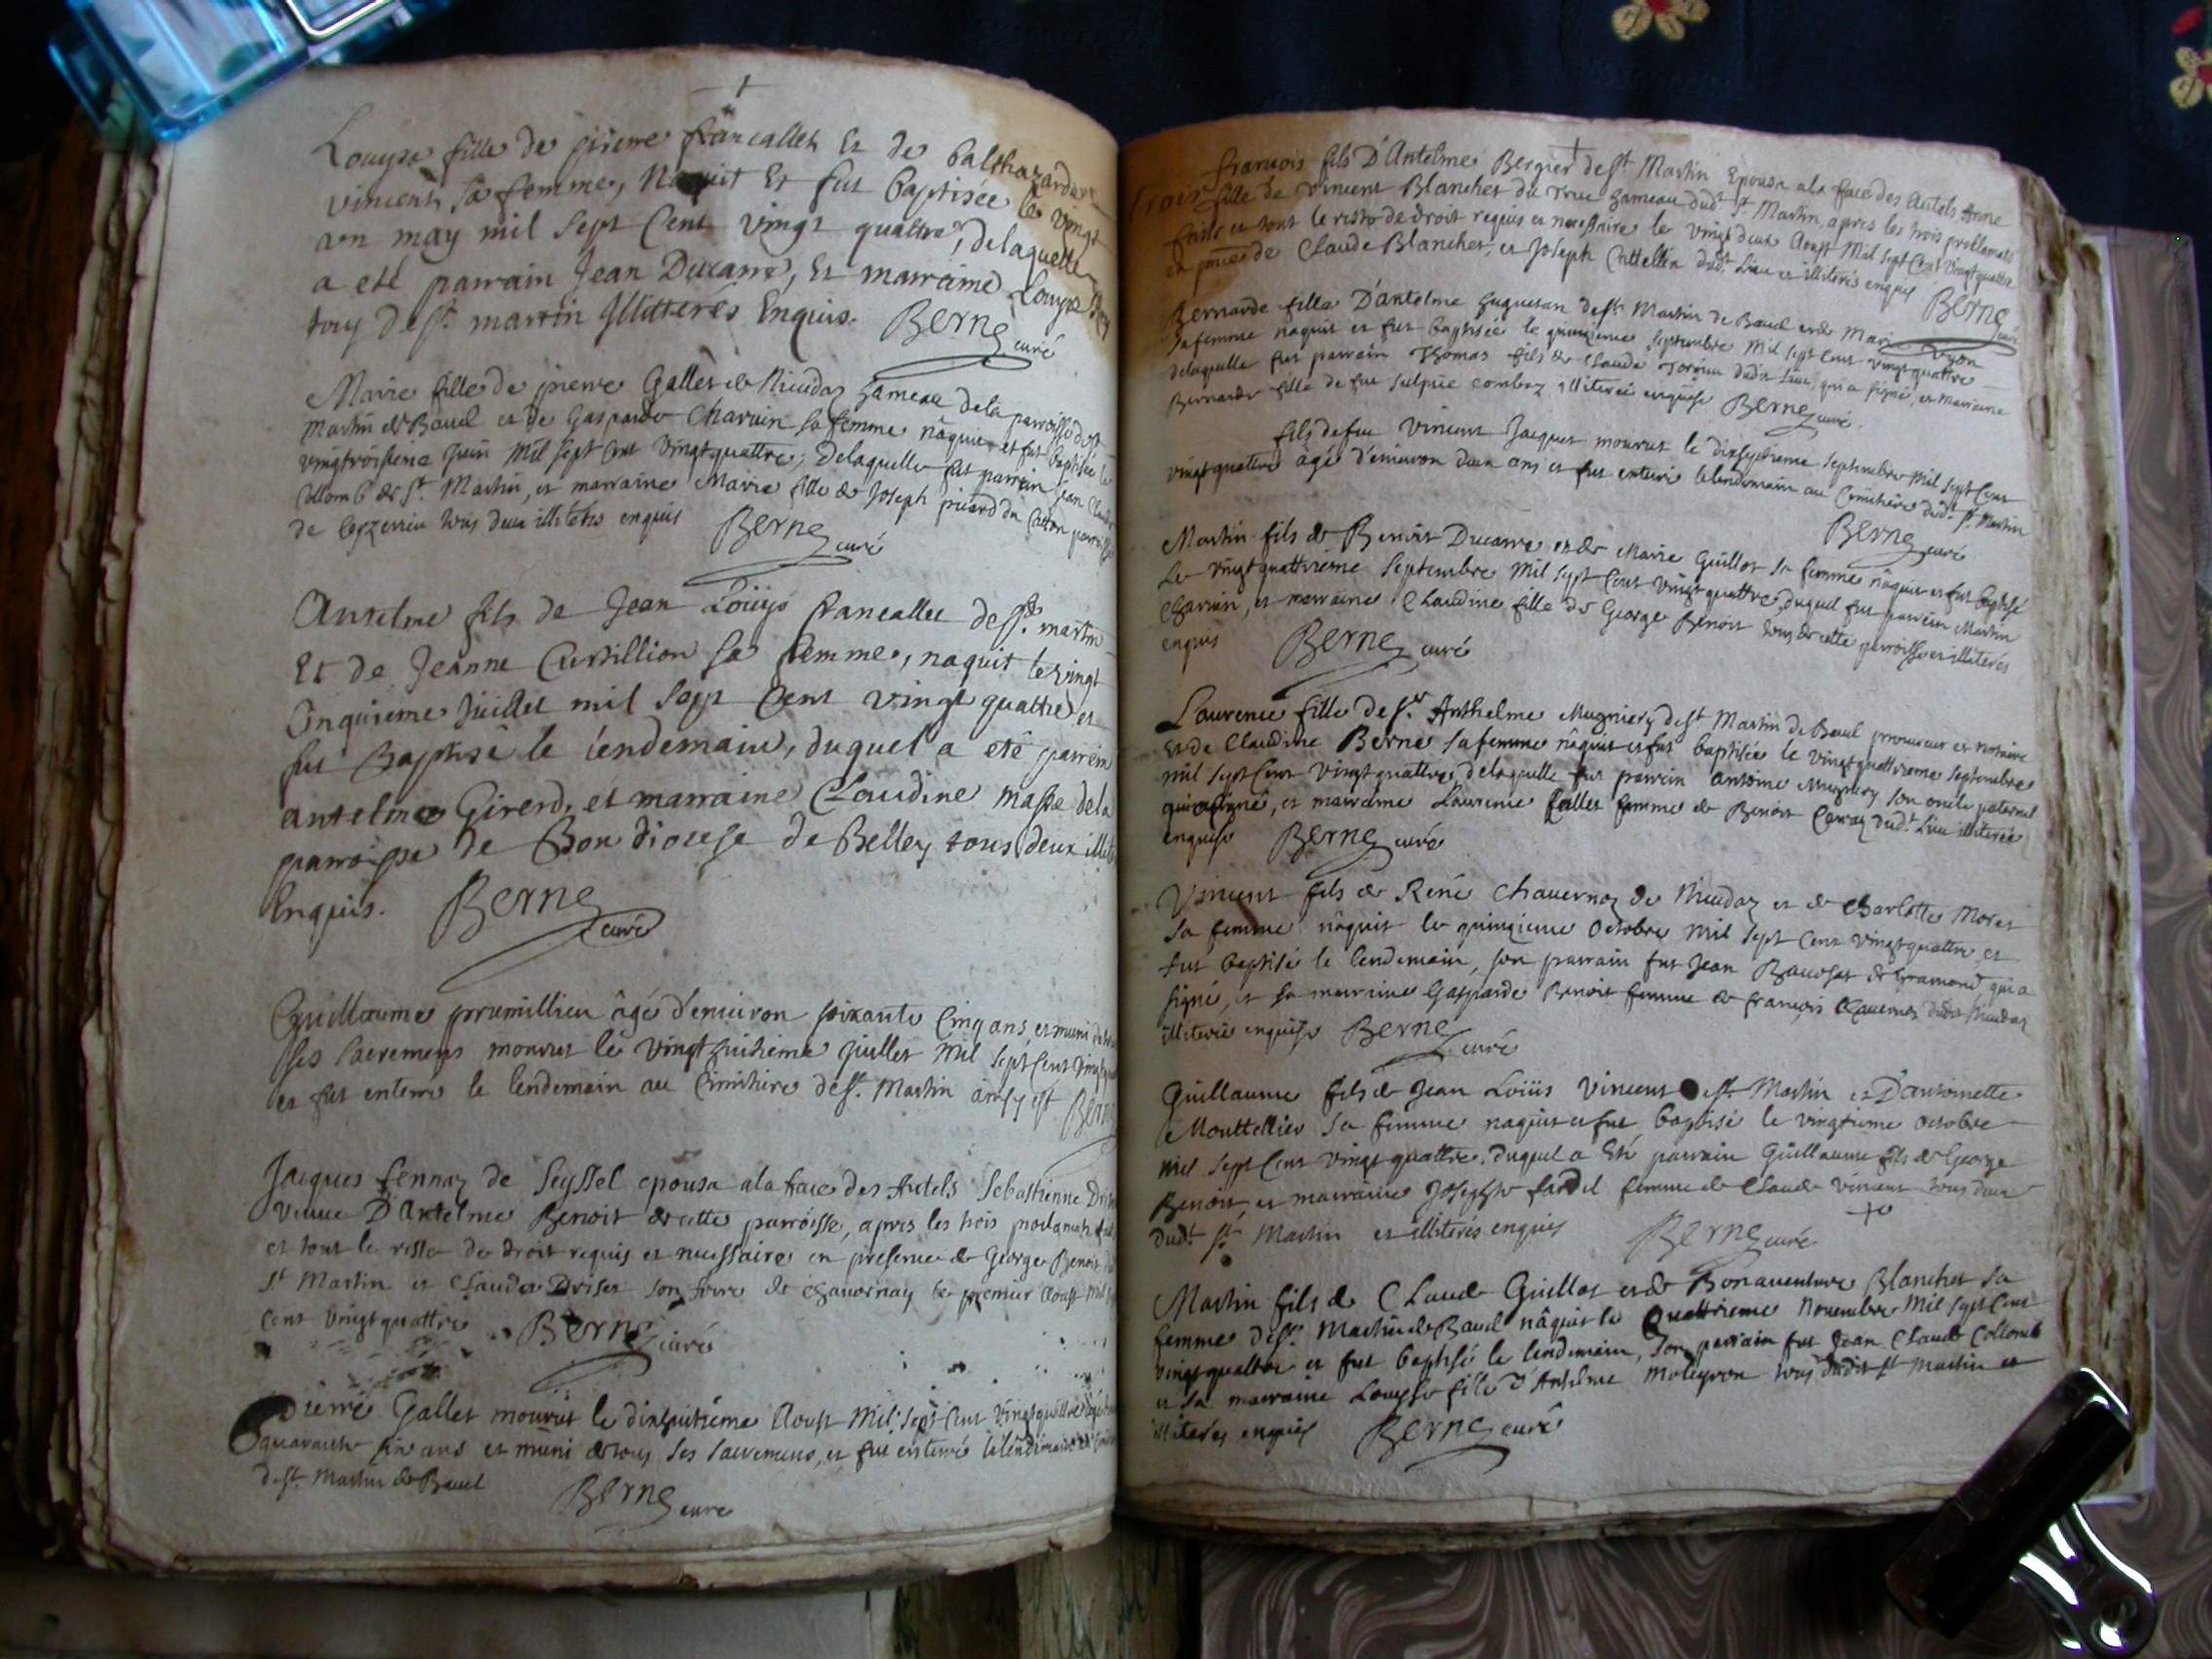 Louyse fille de pierre francallet Et de balthazarde
vincent sa femme, Naquit Et fut baptisée le vingt
may mil sept Cent vingt quattre, delaquelle
a eté parrain Jean Ducarre, Et marraine Louyse
de st. martin Illitterés Enquis. Berne curé
Marie fille de pierre Gallet de hameau dela parroisse de st
Martin de Bavel et de Gasparde Charvin sa femme nâquit et fut baptisée le
vingttroisieme Juin Mil sept Cent vingt quattre; delaquelle fut parrain Jean Claude
Collomb de St. Martin, et marraine Marie fille de Joseph picard du
de tous deux illiterés enquis Berne curé
Anselme fils de Jean Loüys francallet de st. martin
Et de Jeanne Curtillion sa femme, naquit le vingt
Cinquieme Juillet mil sept Cent vingt quattre et
fut Baptisé le lendemain, duquel a eté parrein
antelme Girerd, et marraine Claudine masse dela
parroisse de Bon diocese de Belley tous deux
Enquis. Berne curé
Guillaume prumillieu âgé d'environ soixante Cinq ans, et muni de
ses sacremens mourut le vingthuitieme Juillet Mil sept Cent
et fut enterré le lendemain au Cimitiere de st. Martin ainsy est Berne
Jacques fennaz de Seyssel epousa ala face des Autels Sebastienne
veuve D'Antelme Benoit de cette parroisse, apres les trois
et tout le reste de droit requis et necessaire en presence de George Benoit
St Martin et Claude Driset son frere de Chavornay le premier Aoust Mil
Cent vingt quattre Berne curé
Pierre Gallet mourut le dixhuitieme Aoust Mil sept Cent vingt quattre
quarante six ans et muni de tous ses sacremens, et fut enterré le lendemain
de st. Martin de Bavel Berne curé
francois fils D'Antelme Bergier de st Martin Epousa ala face des Autels Anne
fille de Vincent Blanchet du Truc hameau dudt St Martin, apres les trois
faites et tout le reste de droit requis et necessaire le vingt deux Aoust Mil sept Cent vingt quattre
de Claude Blanchet, et Joseph Cattellin dudt. Lieu et illiterés enquis Berne curé
Bernarde fille D'antelme de st. Martin de Bavel et de Marie
sa femme naquit et fut baptisée le quinzieme septembre Mil sept Cent vingt quattre
delaquelle fut parrain Thomas fils de Claude dudit lieu, qui a signé, et marraine
Bernarde fille de feu Sulpice illiterée enquise Berne curé.
fils de feu Vincent Jacquet mourut le dixseptieme Septembre Mil sept Cent
vingt quattre âgé d'environ deux ans et fut enterré le lendemain au Cimitiere dudt. St. Martin
Berne curé
Martin fils de Benoit Ducarre et de Marie Guillot sa femme nâquit et fut baptisé
Le vingt quattrieme Septembre Mil sept Cent vingt quattre, duquel fut parrein Martin
Charvin, et marraine Claudine fille de George Benoit tous de cette parroisse et illiterés
enquis Berne curé
Laurence fille de sr. Anthelme Mugniery de St Martin de Bavel procureur et notaire
et de Claudine Berne sa femme nâquit et fut baptisée le vingt quattrieme septembre
mil sept Cent vingt quattre, delaquelle fut parrein antoine Mugniery son oncle paternel
qui a signé, et marraine Laurence femme de Benoit dudt. Lieu illiterée
enquise Berne curé
Vincent fils de René Chavernoz de et de Charlotte Moret
sa femme nâquit le quinzieme Octobre Mil sept Cent vingt quattre, et
fut baptisé le lendemain, son parrain fut Jean de qui a
signé, et sa marraine Gasparde Benoit femme de francois dudit
illiterée enquise Berne curé
Guillaume fils de Jean Loüis Vincent de st. Martin et D'antoinette
Monttellier sa femme naquit et fut baptisé le vingtieme Octobre
Mil sept Cent vingt quattre, duquel a Eté parrain Guillaume fils de George
Benoit, et marraine Josephte fardel femme de Claude Vincent tous deux
dudt. St. Martin et illiterés enquis Berne curé
Martin fils de Claude Guillot et de Bonaventure Blanchet sa
femme de st. Martin de Bavel nâquit le Quattrieme Novembre Mil sept Cent
vingt quattre et fut baptisé le lendemain, son parrain fut Jean Claude Collomb
et sa marraine Louyse fille d'Anthelme tous dudit St Martin et
illiterés enquis Berne curé